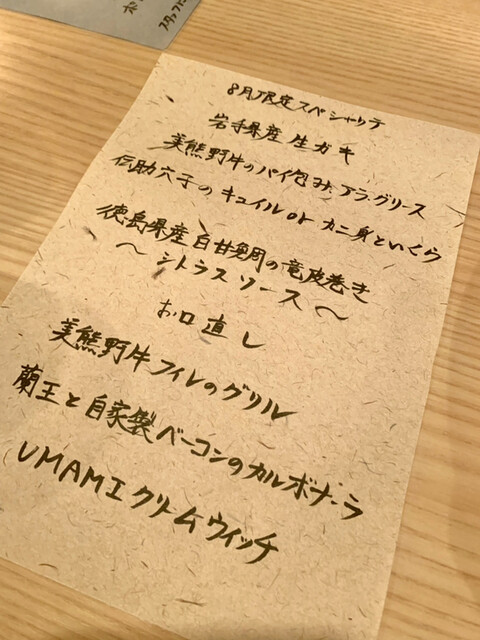 8月限定スペシャリテ
岩手県産生ガキ
美熊野牛のパイ包み、アラ・グリース
伝助穴子のキュイル or カニ身といくら
徳島県産白甘鯛の竜皮巻き
～シトラスソース～
お口直し
美熊野牛フィレのグリル
蘭王と自家製ベーコンのカルボナーラ
UMAMIクリームウィッチ
スタッフに